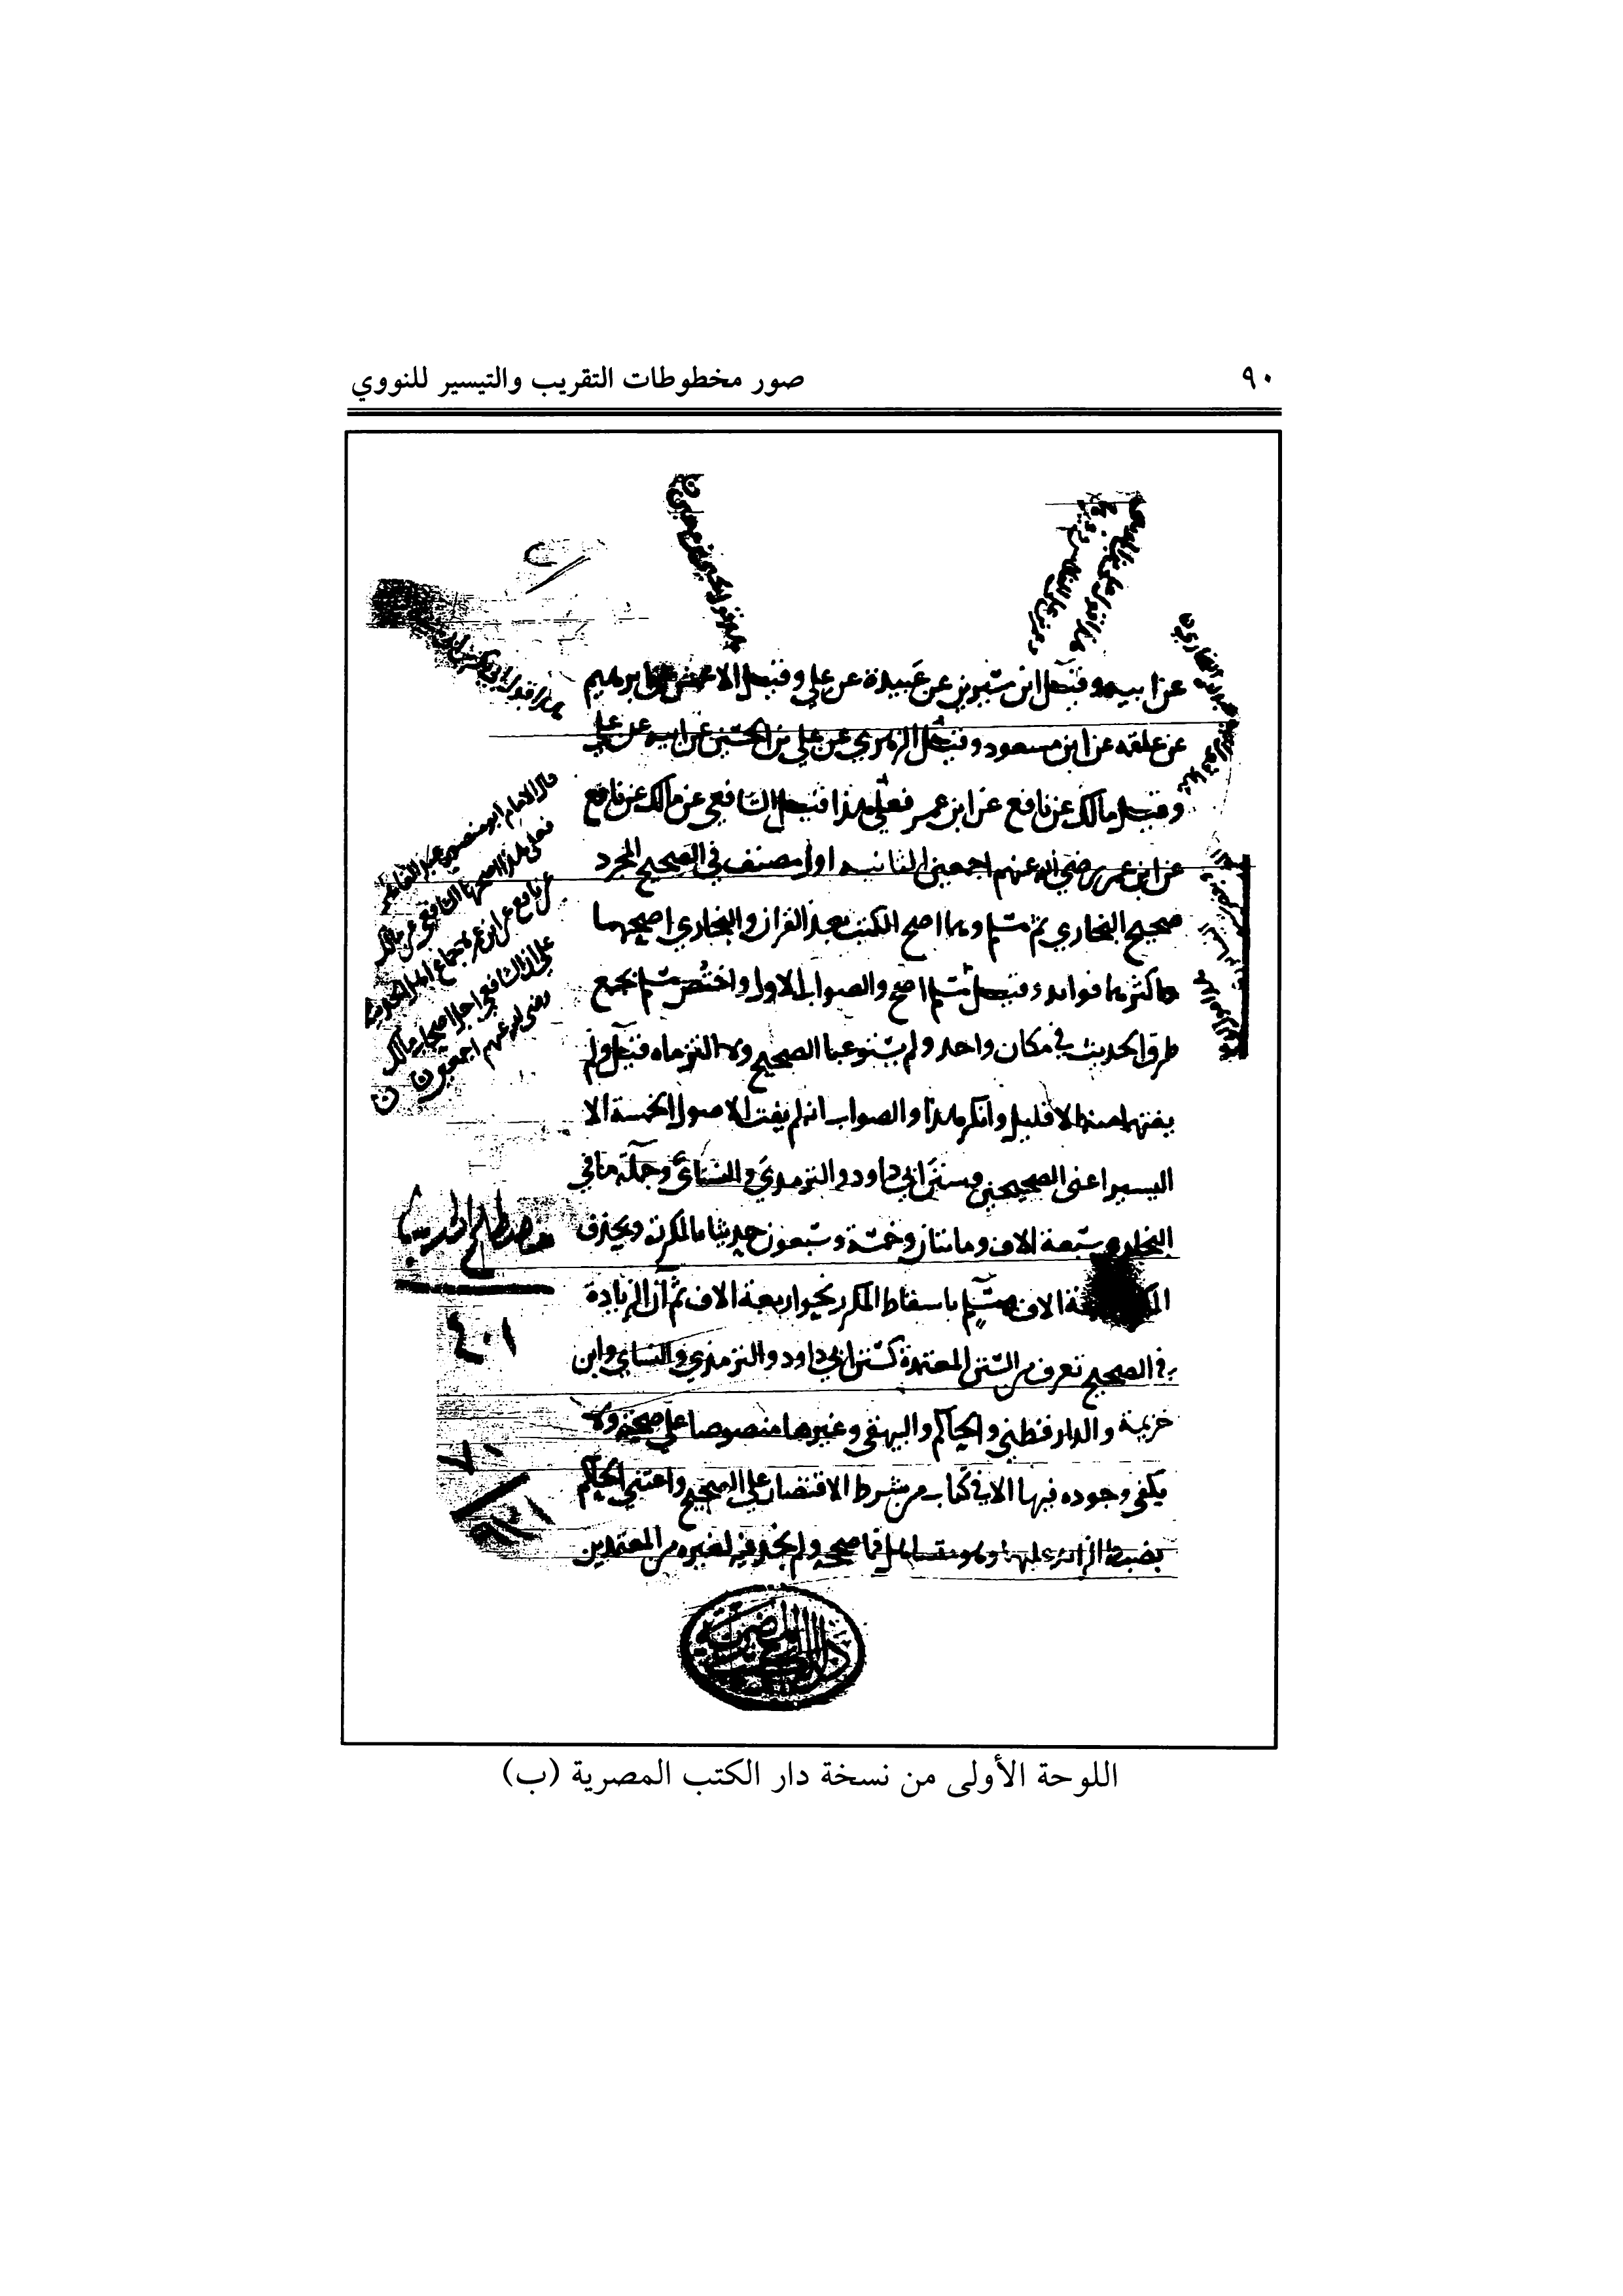 ٩٠
صور مخطوطات التقريب والتيسير للنووي
عن ابيه وقيل ابن سيرين عن عبيدة عن علي وقيل الاعمش عن ابرهيم
عن علقمه عن ابن مسعود وقيل الزهري عن علي بن الحسين عن ابيه عن علي
وقيل مالك عن نافع عن ابن عمر فعلى هذا قيل الشافعي عن مالك عن نافع
عن ابن عمر رضي الله عنهم اجمعين الثانيه اول مصنف في الصحيح المجرد
صحيح البخاري ثم مسلم وهما اصح الكتب بعد القران والبخاري اصحهما
واكثرهما فوايد وقيل مسلم اصح والصواب الاول واختص مسلم بجمع
طرق الحديث في مكان واحد ولم يستوعبا الصحيح ولا التزماه قيل ولم
يفتهما منه الا قليل وانكر هذا والصواب انه لم يفت الاصول الخمسة الا
اليسير اعني الصحيحين وسنن ابي داود والترمذي والنساي وجملة ما في
البخاري سبعة الاف ومايتان وخمسة وسبعون حديثا بالمكررة وبحذف
الاف ومسلم باسقاط المكرر نحو اربعة الاف ثم ان الزيادة
في الصحيح تعرف من السنن المعتمدة كسنن ابي داود والترمذي والنساي وابن
خزيمة والدارقطني والحاكم والبيهقي وغيرها منصوصا على صحته ولا
يكفي وجوده فيها الا في كتاب من شرط الاقتصار على الصحيح واعتنى الحاكم
بضبط الزائد عليهما وهو متساهل فما صححه ولم نجد فيه لغيره من المعتمدين
قال الامام ابو منصور عبد القاهر
فعلى هذا اصحها الشافعي عن مالك
عن نافع عن ابن عمر لاجماع اهل الحديث
على ان الشافعي اجل اصحاب مالك
رضي الله عنهم اجمعين
مصطلح الحديث
٤٠١
دار الكتب المصرية
اللوحة الأولى من نسخة دار الكتب المصرية (ب)